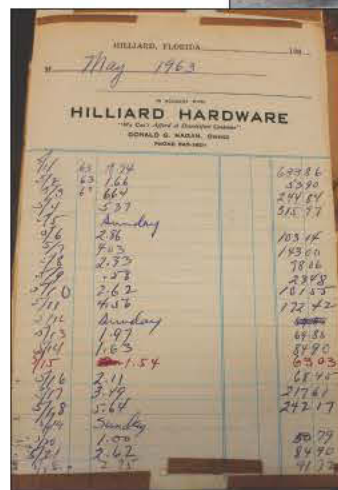 HILLIARD, FLORIDA 19
M May 1963
IN ACCOUNT WITH
HILLIARD HARDWARE
"We Can't Afford A Dissatisfied Customer"
DONALD G. OWNER
PHONE
5/1 63 7.74 69986
5/2 63 1.66 5390
5/3 6 664 24484
5/4 5.37 31577
5/5 Sunday
5/6 2.86 10314
5/7 403 14300
5/8 2.33 7806
5/9 .58 2848
5/10 2.62 10155
5/11 4.56 17242
5/12 Sunday
5/13 1.97 69.86
5/14 1.63 8490
5/15 1.54 6303
5/16 2.11 68.45
5/17 3.49 21761
5/18 5.64 24217
5/19 Sunday
5/20 1.00 5079
5/21 2.62 8490
2.75